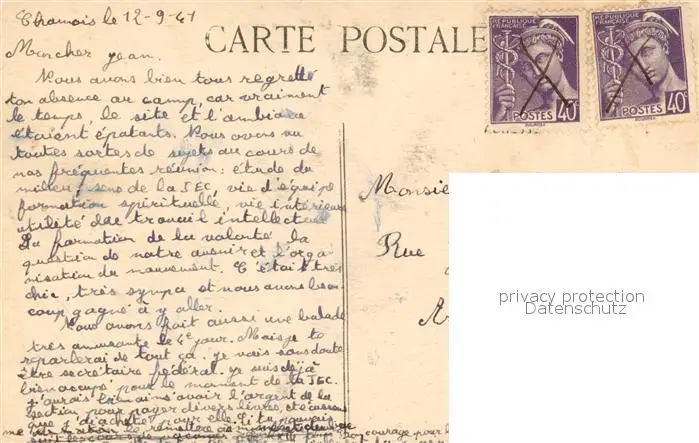 Chamois le 12-9-41
Mon cher Jean.
Nous avons bien tous regretté
ton absence au camp, car vraiment
le temps, le site et l'ambiance
étaient épatants. Nous avons vu
toutes sortes de sujets au cours de
nos fréquentes réunion: étude du
milieu, sens de la JEC, vie d'équipe
formation spirituelle, vie intérieure
utilité du travail intellectuel
La formation de la volonté la
question de notre avenir et l'orga-
nisation du mouvement. C'était très
chic, très sympa et nous avons beau-
coup gagné à y aller.
Nous avons fait aussi une balade
très amusante le 4e jour. Mais je te
reparlerai de tout ça. Je vais sans doute
être secrétaire fédéral. Je suis déjà
bien occupé pour le moment de la JEC.
J'aurais bien aimé avoir l'argent de la
section pour payer divers
que j'ai acheté pour elle. Si tu pouvais
me le remettre
courage pour
CARTE POSTALE
RÉPUBLIQUE FRANÇAISE
POSTES 40c
RÉPUBLIQUE FRANÇAISE
POSTES 40c
Monsie
Rue
privacy protection
Datenschutz